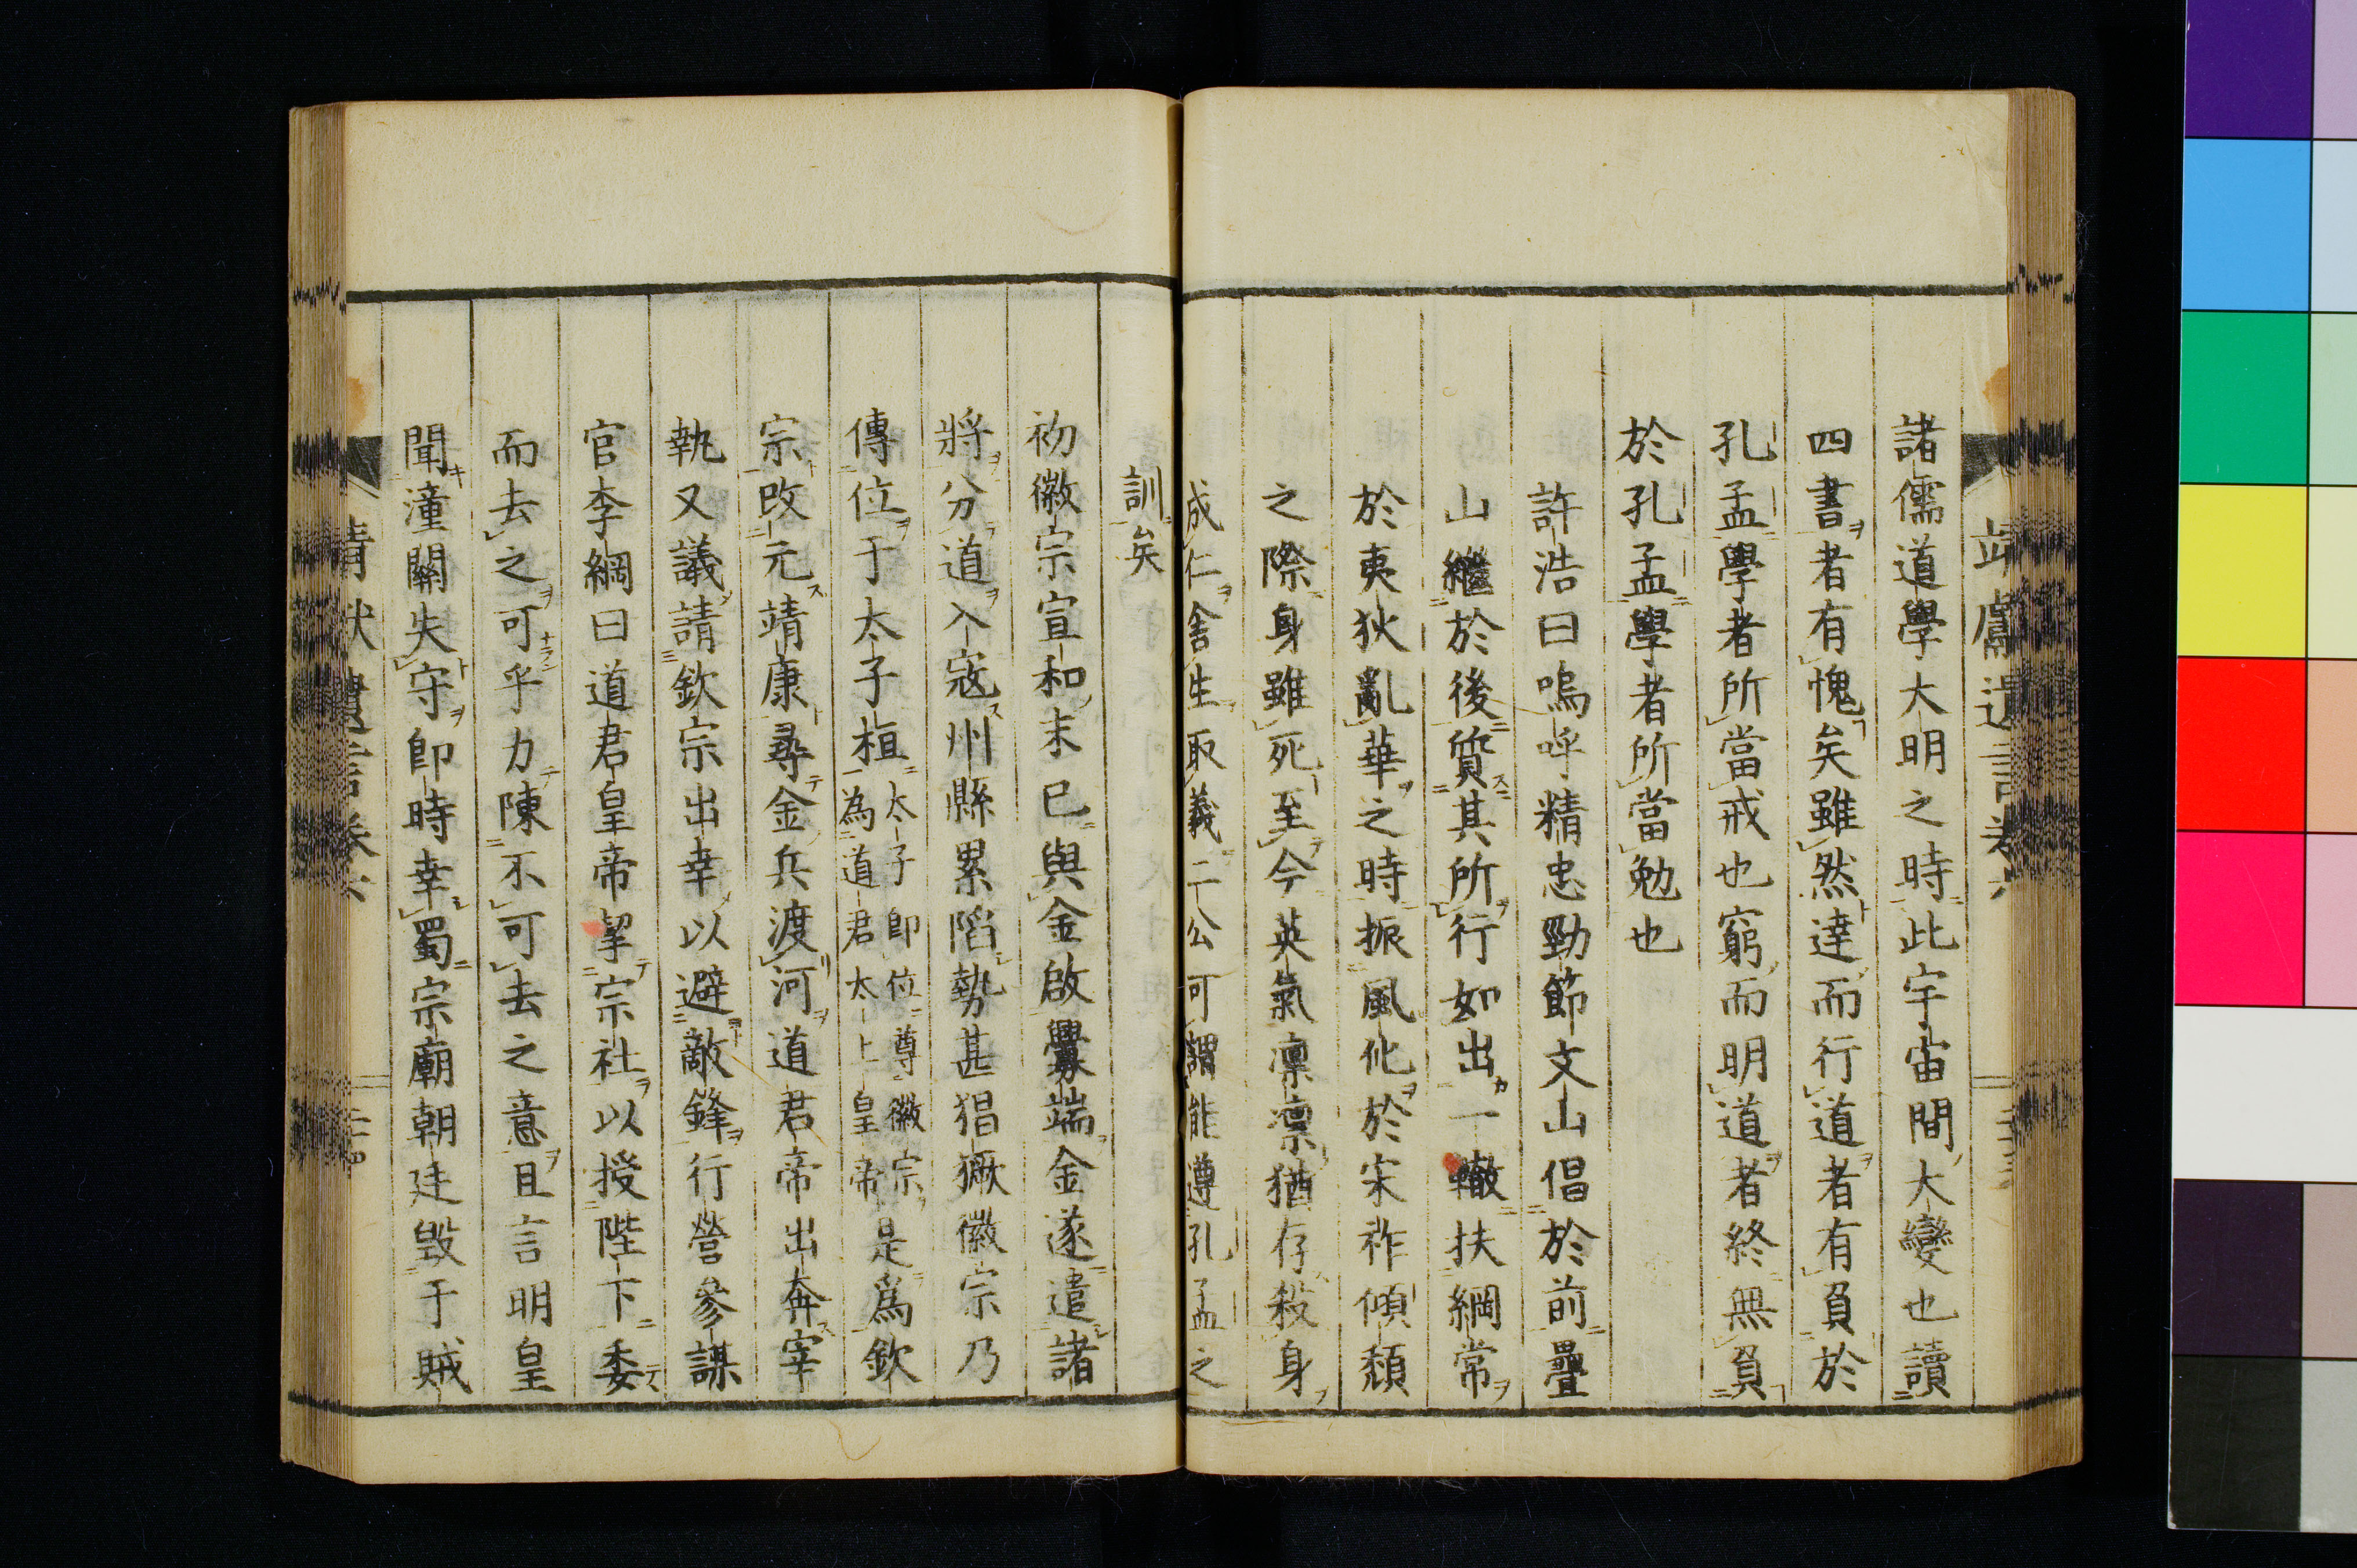 諸儒道學大明之時此宇宙間大變也讀
四書者有愧矣雖然達而行道者有負於
孔孟學者所當戒也窮而明道者終無負
於孔孟學者所當勉也
許浩曰嗚呼精忠勁節文山倡於前疊
山繼於後質其所行如出一轍扶綱常
於夷狄亂華之時振風化於宋祚傾頹
之際身雖死至今英氣凛凛猶存殺身
成仁舍生取義二公可謂能遵孔孟之
訓矣
初徽宗宣和末已與金啟釁端金遂遣諸
將分道入寇州縣累陷勢甚猖獗徽宗乃
傳位于太子桓太子即位尊徽宗為道君太上皇帝是爲欽
宗改元靖康尋金兵渡河道君帝出奔宰
執又議請欽宗出幸以避敵鋒行營參謀
官李綱曰道君皇帝挈宗社以授陛下委
而去之可乎力陳不可去之意且言明皇
聞潼關失守即時幸蜀宗廟朝廷毀于賊